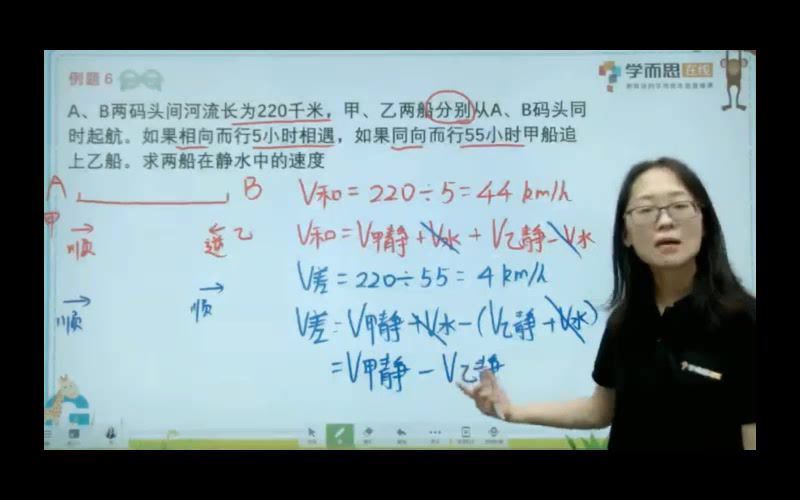 例题 6
学而思 在线
A、B两码头间河流长为220千米，甲、乙两船分别从A、B码头同
时起航。如果相向而行5小时相遇，如果同向而行55小时甲船追
上乙船。求两船在静水中的速度
A B
甲 顺 逆 乙
顺 顺
V和 = 220÷5 = 44 km/h
V和 = V甲静 + V水 + V乙静 - V水
V差 = 220÷55 = 4 km/h
V差 = V甲静 + V水 - (V乙静 + V水)
= V甲静 - V乙静